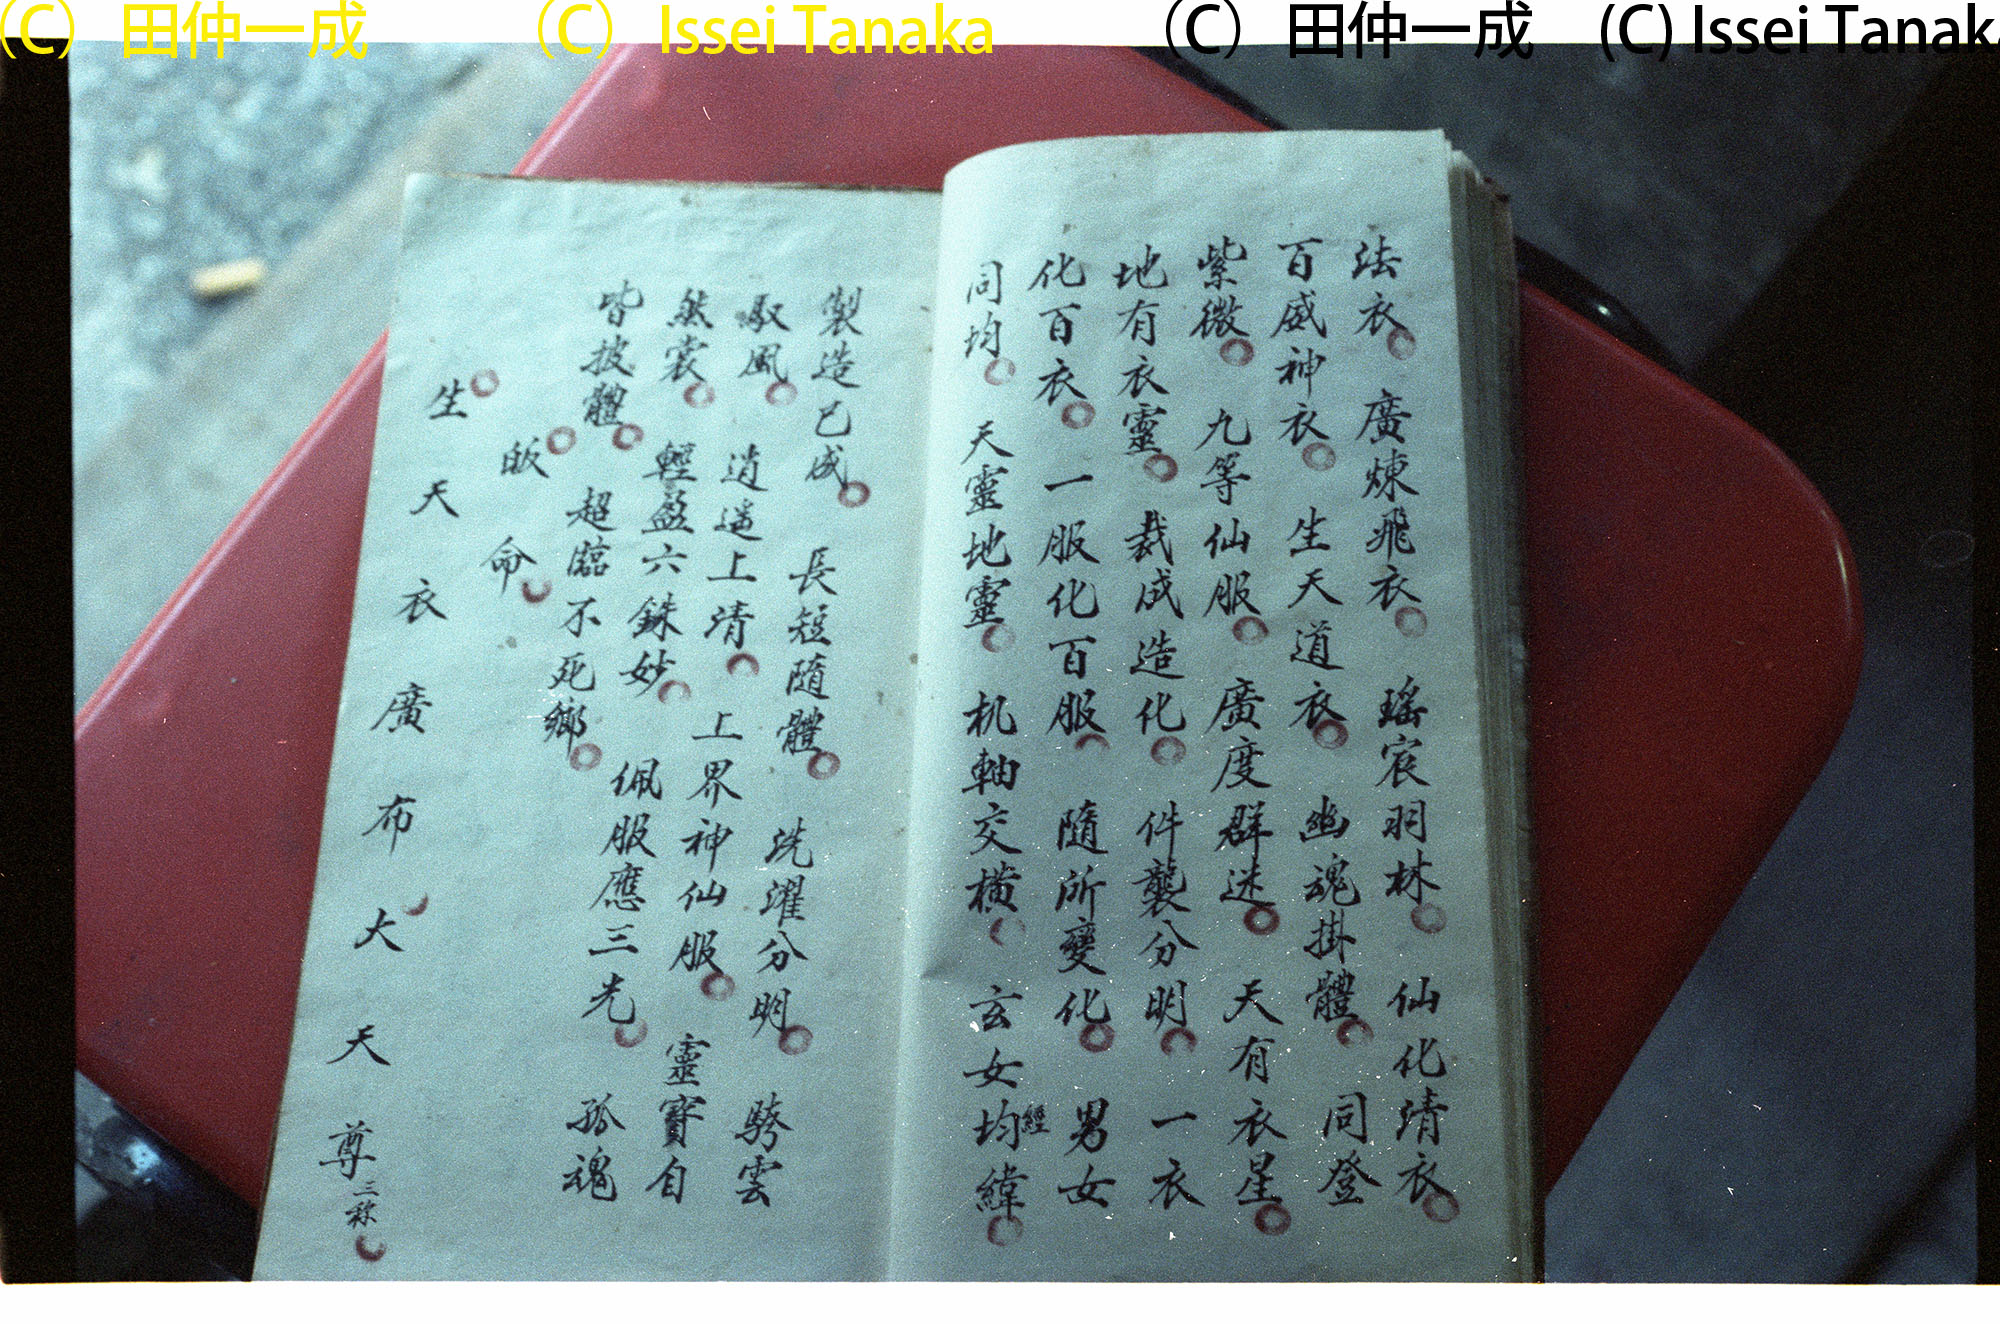 (C) 田仲一成 (C) Issei Tanaka (C) 田仲一成 (C) Issei Tanaka
法衣 廣煉飛衣 瑤宸羽林 仙化清衣
百威神衣 生天道衣 幽魂掛體 同登
紫微 九等仙服 廣度群迷 天有衣星
地有衣靈 裁成造化 件襲分明 一衣
化百衣 一服化百服 隨所變化 男女
同均 天靈地靈 机軸交橫 玄女均經緯
製造已成 長短隨體 洗濯分明 騎雲
馭風 逍遥上清 上界神仙服 靈寶自
然裳 輕盈六銖妙 佩服應三光 孤魂
皆披體 超臨不死鄉
皈命
生天衣廣布大天尊三称